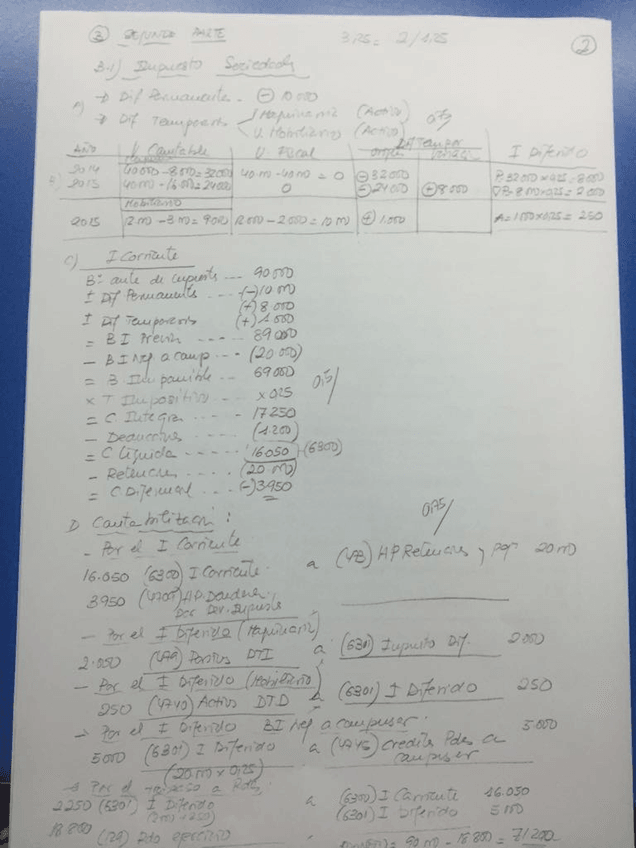 ③ SEGUNDA PARTE 3,25 = 2/1.25
②
3.1) Impuesto Sociedades
A) → Dif Permanentes. ⊖ 10 000
→ Dif Temporaria Maquinaria (Activo)
U. Mobiliario (Activo) 0,75
Año V Contable V. Fiscal Dif Tempor I Diferido
Maquinaria
2014 40 000 - 8 000 = 32000 40 m - 40 m = 0 ⊖ 32000 P 32000 x 0,25 = 8 000
B) 2015 40 m - 16 000 = 24000 0 ⊖ 24000 ⊕ 8 000 8 m x 0,25 = 2 000
Mobiliario
2015 12 m - 3 m = 9000 12 000 - 2 000 = 10 m ⊕ 1.000 A = 1 000 x 0,25 = 250
C) I Corriente
Bº ante de impuesto --- 90 000
± Dif Permanente ---- (-) 10 m
(+) 8 000
± Dif Temporaria ---- (+) 1 000
= B I Previa ----- 89 000
- B I Neg a comp --- (20 000)
= B. Imponible --- 69 000
x T Impositivo ---- x 0,25 0,5/
= C Integra ---- 17 250
- Deducciones ---- (1.200)
= C Líquida ----- 16.050 (6300)
- Retenciones ---- (20 m)
= C Diferencial --- (-) 3950
D) Contabilización:
0,75/
- Por el I Corriente
16.050 (6300) I Corriente a (473) HP Retenciones y pag 20 m
3950 (4709) HP Deudora
por dev. Impuesto
- Por el I Diferido (Maquinaria)
2.000 (479) Pasivo DTI a (6301) Impuesto Dif. 2 000
- Por el I Diferido (Mobiliario)
250 (4740) Activos DTD a (6301) I Diferido 250
→ Por el I Diferido BI Neg a compensar:
5000 (6301) I Diferido a (4745) Credito Pdas a 5.000
(20 m x 0,25) compensar
→ Por el Rdo:
2250 (6301) I Diferido a (6300) I Corriente 16.050
(2000 + 250) (6301) I Diferido
18.800 (129) Rdo ejercicio
90 m - 18 800 = 71.200